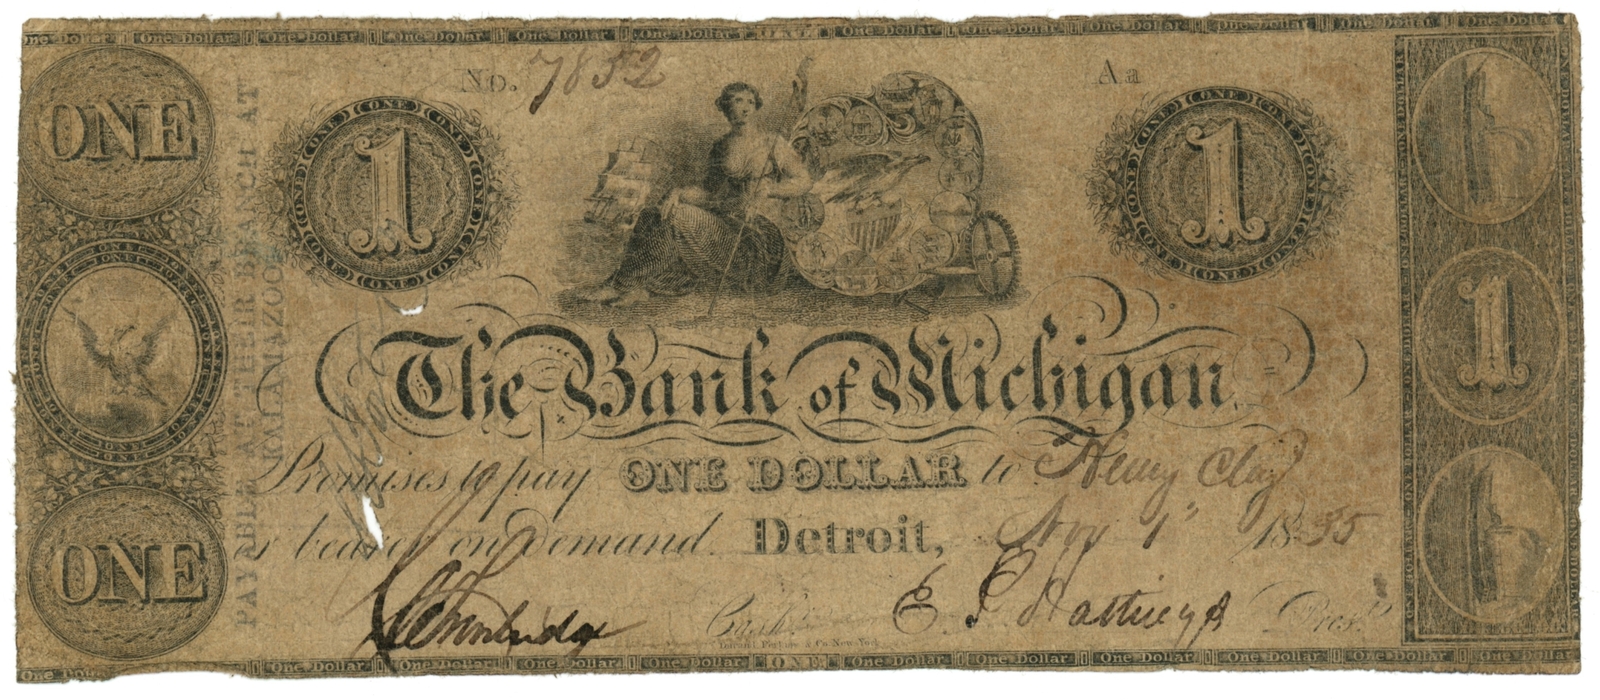 One Dollar One Dollar One Dollar One Dollar One Dollar One Dollar ONE One Dollar One Dollar One Dollar One Dollar One Dollar One Dollar
No. 7852
Aa
ONE
1
1
ONE
ONE
1
PAYABLE AT THEIR BRANCH AT
KALAMAZOO
The Bank of Michigan
Promises to pay ONE DOLLAR to Henry Clay
or bearer on demand Detroit, Nov 1" 1835
Cash.r E P Hastings Pres.t
One Dollar One Dollar One Dollar One Dollar One Dollar One Dollar ONE One Dollar One Dollar One Dollar One Dollar One Dollar One Dollar